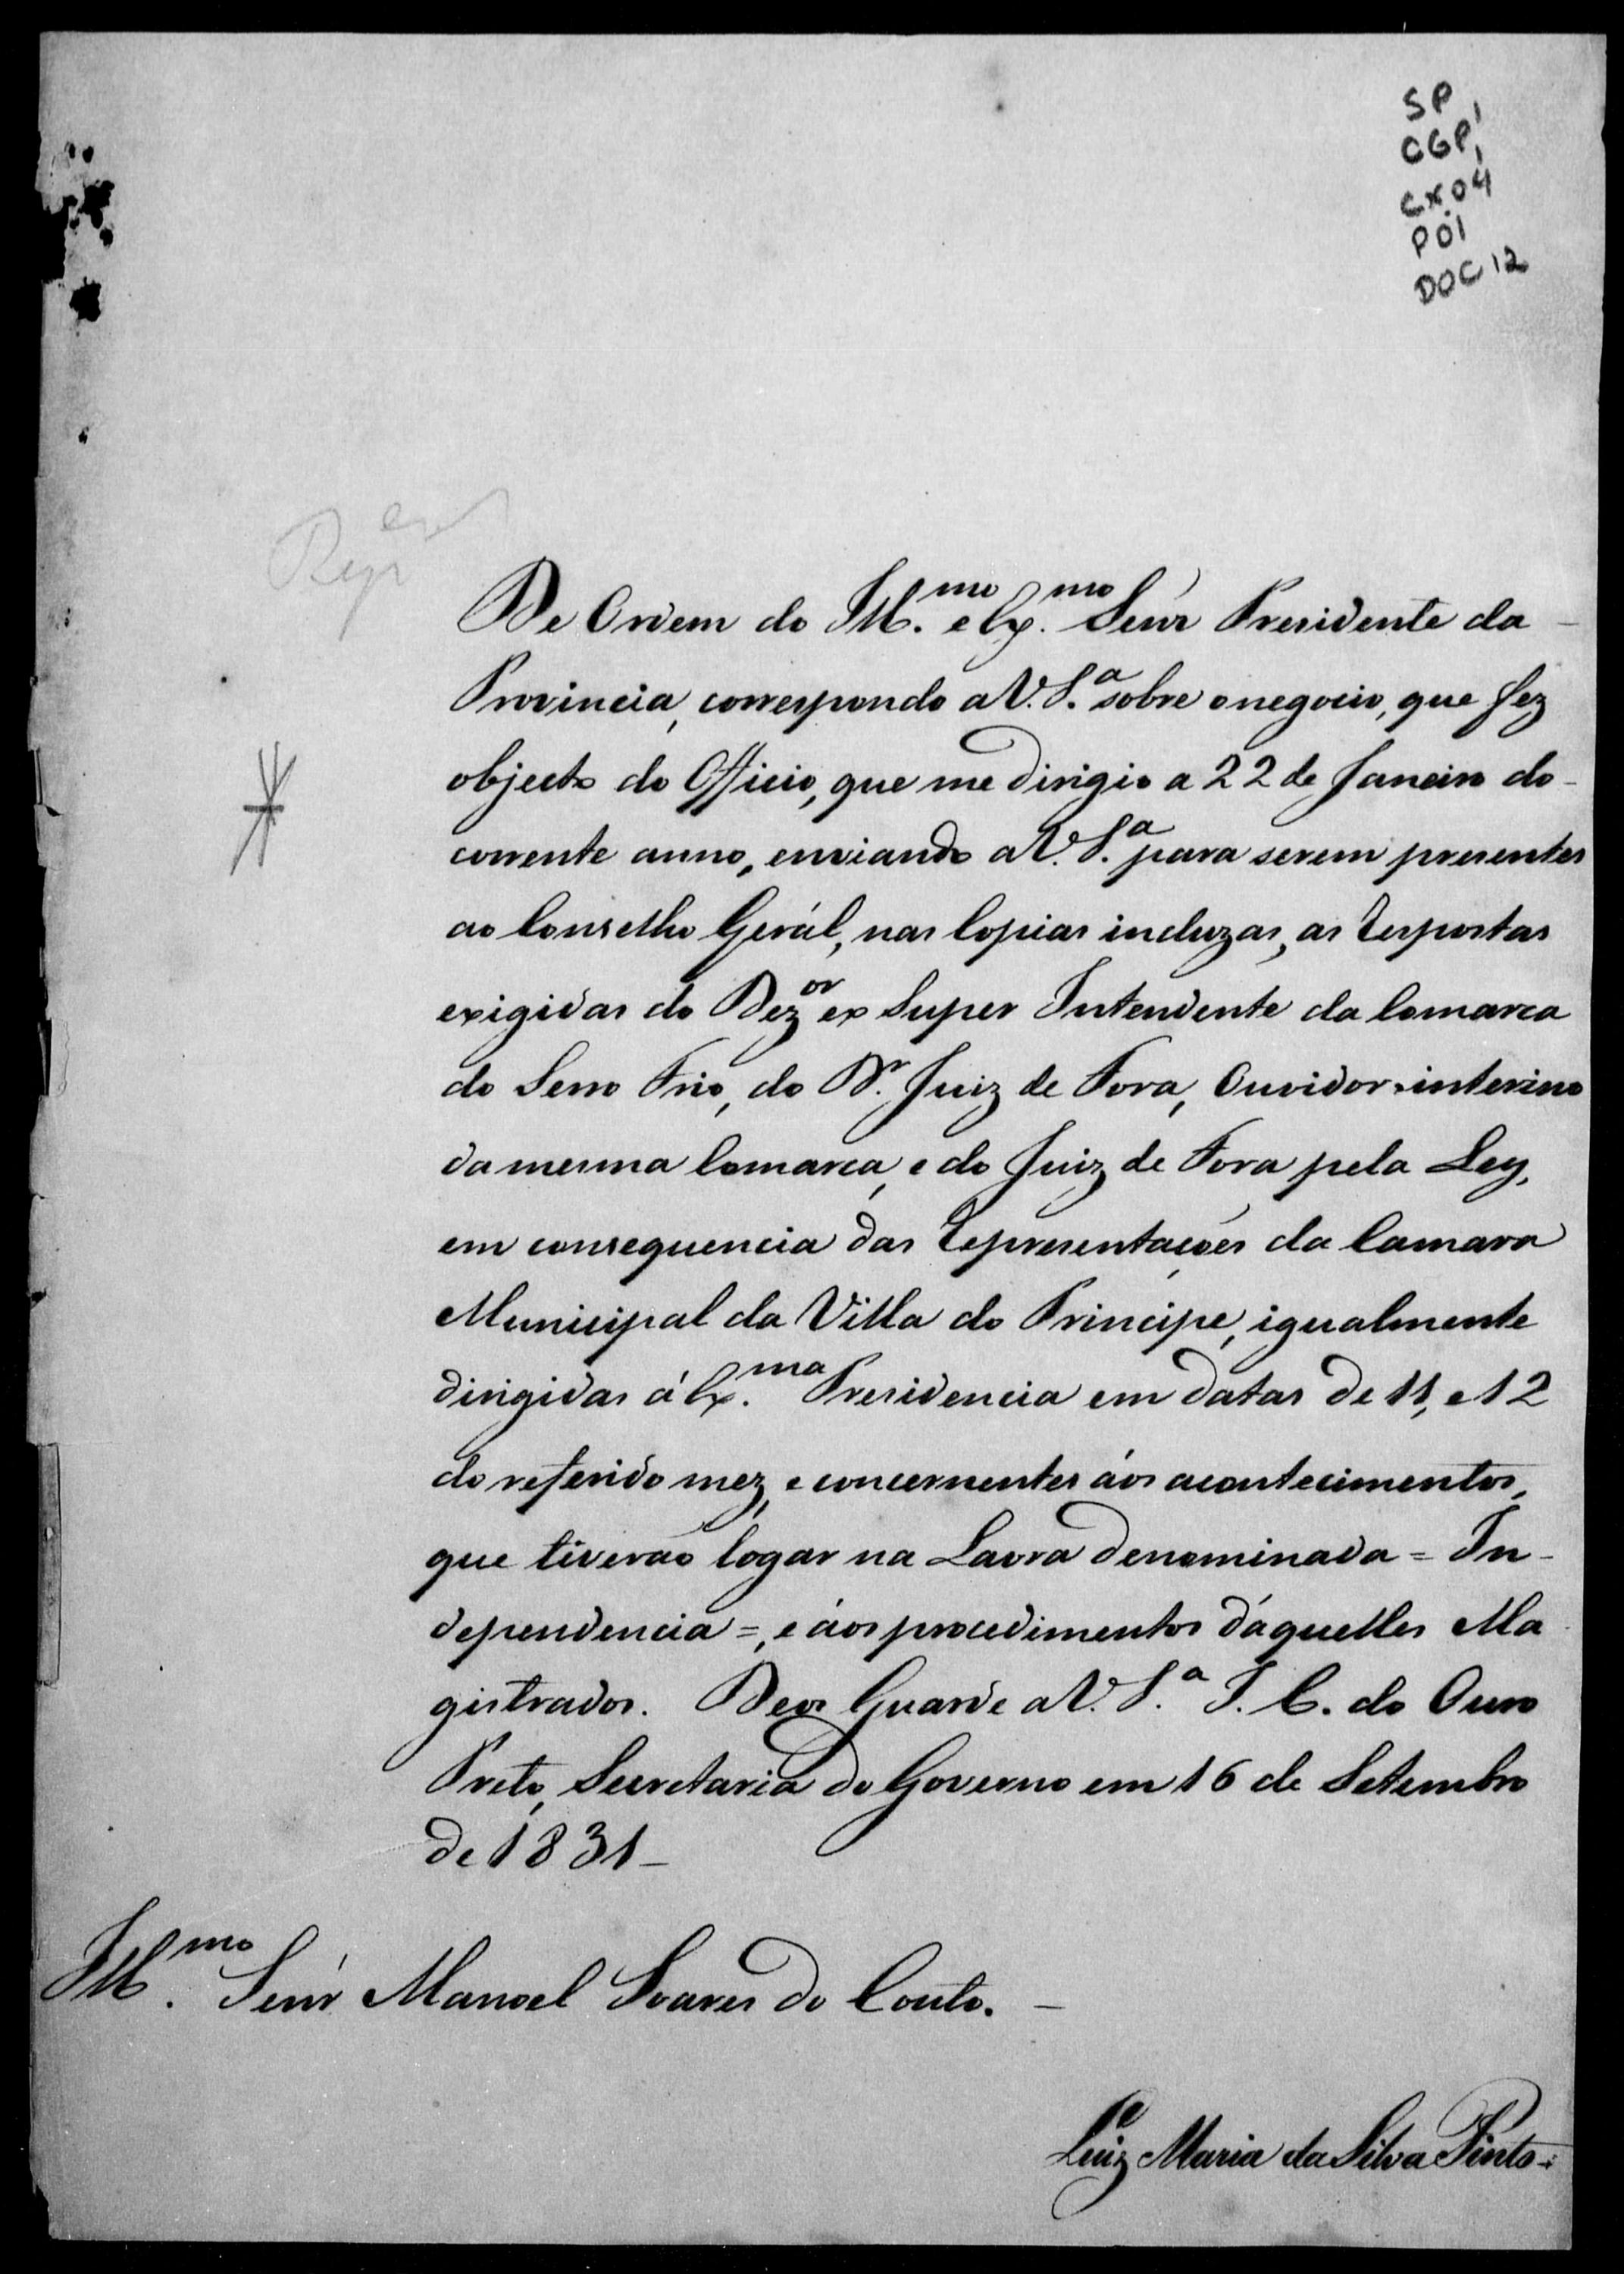 SP
CGP,
CX 04
P 01
DOC 12
De Ordem do Ill.mo e Ex.mo Senr Presidente da
Provincia, correspondo a V. S.a sobre o negocio, que fez
objecto do Officio, que me dirigio a 22 de Janeiro do
corrente anno, enviando a V. S.a para serem presentes
ao Conselho Gerál, nas Copias incluzas, as Respostas
exigidas do Dez.or ex Super Intendente da Comarca
do Serro Frio, do Dr. Juiz de Fora, Ouvidor interino
da mesma Comarca, e do Juiz de Fora pela Ley,
em consequencia das Representações da Camara
Municipal da Villa do Principe, igualmente
dirigidas á Ex.ma Presidencia em datas de 11, e 12
do referido mez, e concernentes áos acontecimentos,
que tiverão logar na Lavra denominada = In-
dependencia =, e áos procedimentos dáquelles Ma
gistrados. Deos Guarde a V. S.a I. C. do Ouro
Preto, Secretaria do Governo em 16 de Setembro
de 1831 -
Ill.mo Senr Manoel Soares do Couto. -
Luiz Maria da Silva Pinto